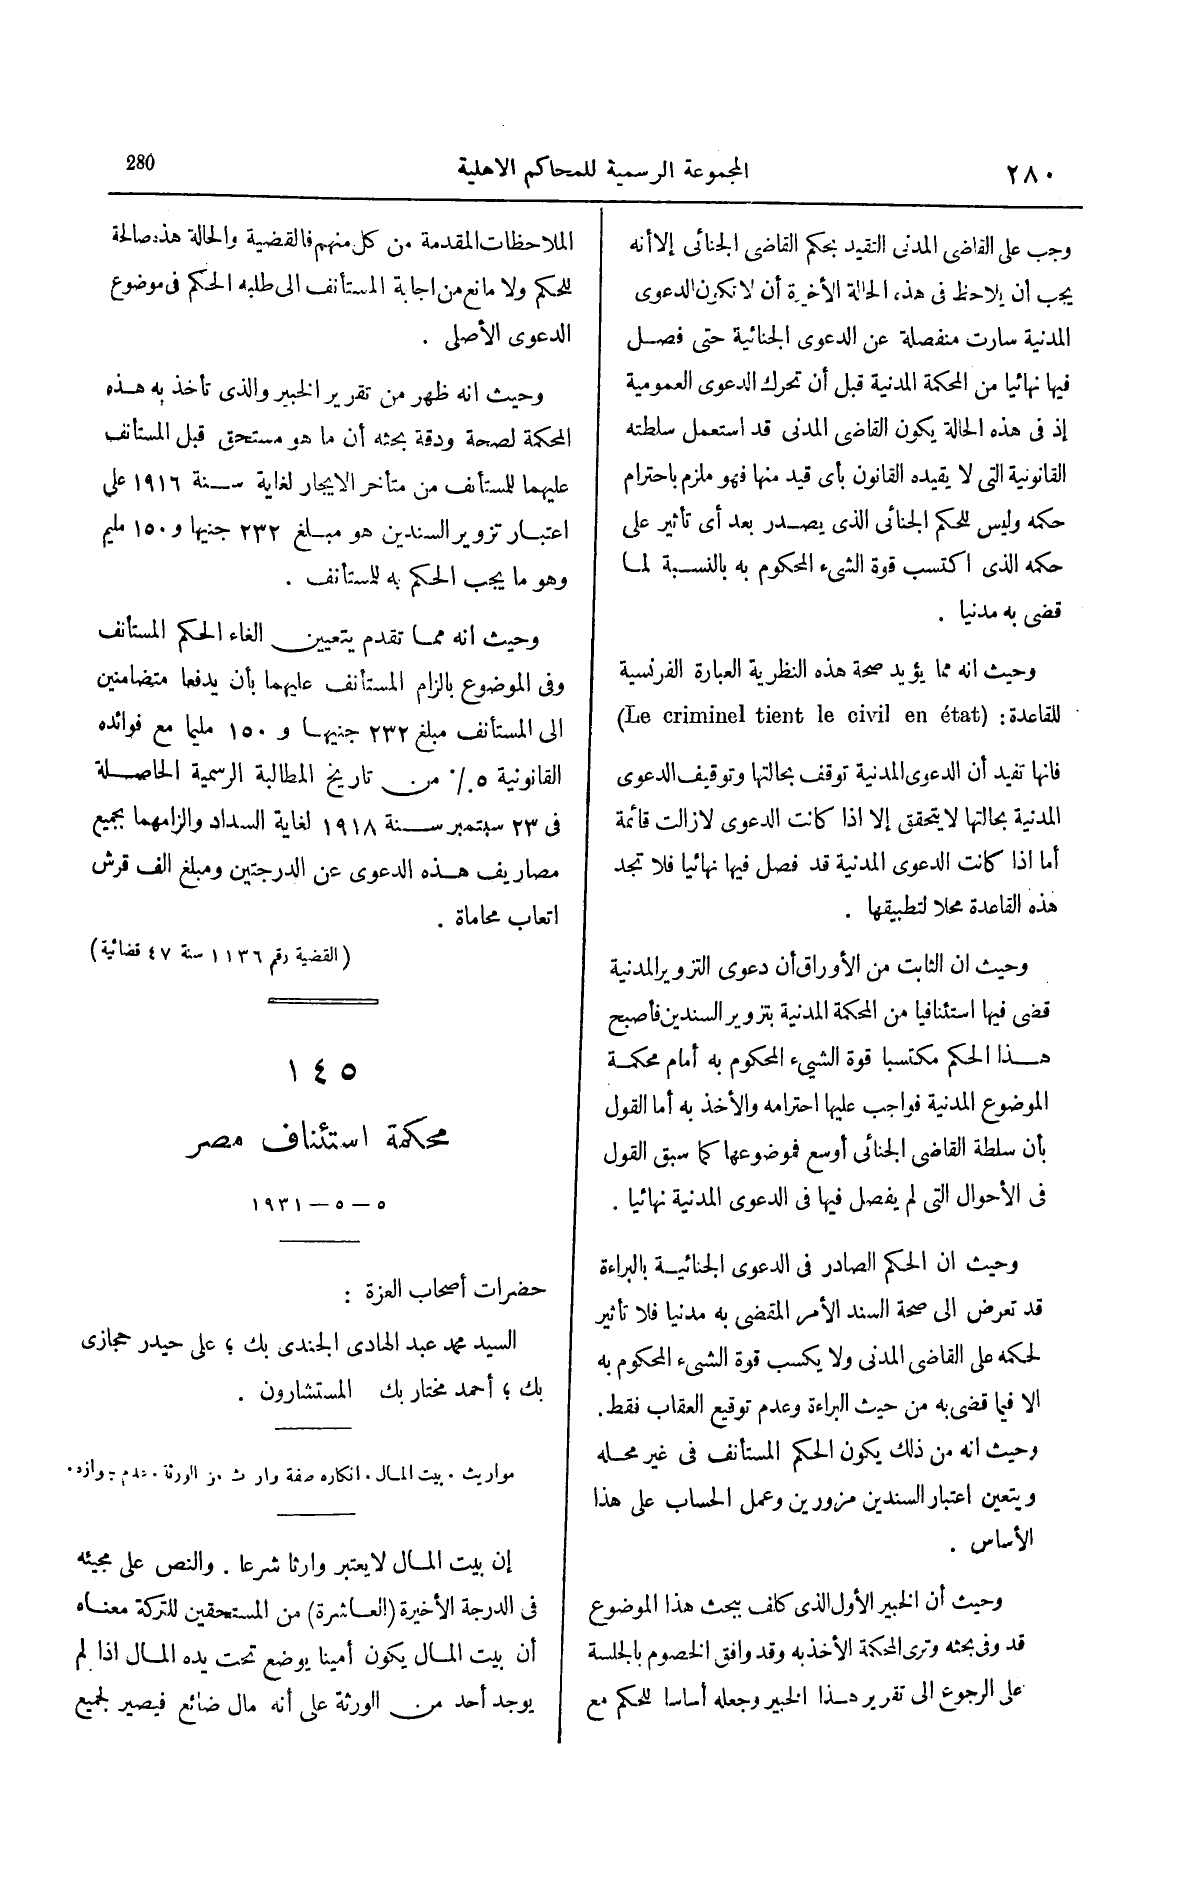 ٢٨٠
المجموعة الرسمية للمحاكم الاهلية
280
وجب على القاضى المدنى التقيد بحكم القاضى الجنائى إلا أنه
يجب أن يلاحظ فى هذه الحالة الأخيرة أن لا تكون الدعوى
المدنية سارت منفصلة عن الدعوى الجنائية حتى فصل
فيها نهائيا من المحكمة المدنية قبل أن تحرك الدعوى العمومية
إذ فى هذه الحالة يكون القاضى المدنى قد استعمل سلطته
القانونية التى لا يقيده القانون بأى قيد منها فهو ملزم باحترام
حكمه وليس للحكم الجنائى الذى يصدر بعد أى تأثير على
حكمه الذى اكتسب قوة الشىء المحكوم به بالنسبة لما
قضى به مدنيا .
وحيث انه مما يؤيد صحة هذه النظرية العبارة الفرنسية
للقاعدة : (Le criminel tient le civil en état)
فانها تفيد أن الدعوى المدنية توقف بحالتها وتوقيف الدعوى
المدنية بحالتها لا يتحقق إلا اذا كانت الدعوى لازالت قائمة
أما اذا كانت الدعوى المدنية قد فصل فيها نهائيا فلا تجد
هذه القاعدة محلا لتطبيقها .
وحيث ان الثابت من الأوراق أن دعوى التزوير المدنية
قضى فيها استئنافيا من المحكمة المدنية بتزوير السندين فأصبح
هذا الحكم مكتسبا قوة الشيء المحكوم به أمام محكمة
الموضوع المدنية فواجب عليها احترامه والأخذ به أما القول
بأن سلطة القاضى الجنائى أوسع فموضوعها كما سبق القول
فى الأحوال التى لم يفصل فيها فى الدعوى المدنية نهائيا .
وحيث ان الحكم الصادر فى الدعوى الجنائية بالبراءة
قد تعرض الى صحة السند الأمر المقضى به مدنيا فلا تأثير
لحكمه على القاضى المدنى ولا يكسب قوة الشىء المحكوم به
الا فيما قضى به من حيث البراءة وعدم توقيع العقاب فقط .
وحيث انه من ذلك يكون الحكم المستأنف فى غير محله
ويتعين اعتبار السندين مزورين وعمل الحساب على هذا
الأساس .
وحيث أن الخبير الأول الذى كلف ببحث هذا الموضوع
قد وفى بحثه وترى المحكمة الأخذ به وقد وافق الخصوم بالجلسة
على الرجوع الى تقرير هذا الخبير وجعله أساسا للحكم مع
الملاحظات المقدمة من كل منهم فالقضية والحالة هذه صالحة
للحكم ولا مانع من اجابة المستأنف الى طلبه الحكم فى موضوع
الدعوى الأصلى .
وحيث انه ظهر من تقرير الخبير والذى تأخذ به هذه
المحكمة لصحة ودقة بحثه أن ما هو مستحق قبل المستأنف
عليهما للمستأنف من متأخر الايجار لغاية سنة ١٩١٦ على
اعتبار تزوير السندين هو مبلغ ٢٣٢ جنيها و ١٥٠ مليم
وهو ما يجب الحكم به للمستأنف .
وحيث انه مما تقدم يتعين الغاء الحكم المستأنف
وفى الموضوع بالزام المستأنف عليهما بأن يدفعا متضامنين
الى المستأنف مبلغ ٢٣٢ جنيها و ١٥٠ مليما مع فوائده
القانونية ٥ ٪ من تاريخ المطالبة الرسمية الحاصلة
فى ٢٣ سبتمبر سنة ١٩١٨ لغاية السداد والزامهما بجميع
مصاريف هذه الدعوى عن الدرجتين ومبلغ الف قرش
اتعاب محاماة .
(القضية رقم ١١٣٦ سنة ٤٧ قضائية)
١٤٥
محكمة استئناف مصر
٥ – ٥ – ١٩٣١
حضرات أصحاب العزة :
السيد محمد عبد الهادى الجندى بك ؛ على حيدر حجازى
بك ؛ أحمد مختار بك المستشارون .
مواريث . بيت المال . انكاره صفة وارث من الورثة . عدم جوازه .
إن بيت المال لا يعتبر وارثا شرعا . والنص على مجيئه
فى الدرجة الأخيرة (العاشرة) من المستحقين للتركة معناه
أن بيت المال يكون أمينا يوضع تحت يده المال اذا لم
يوجد أحد من الورثة على أنه مال ضائع فيصير لجميع